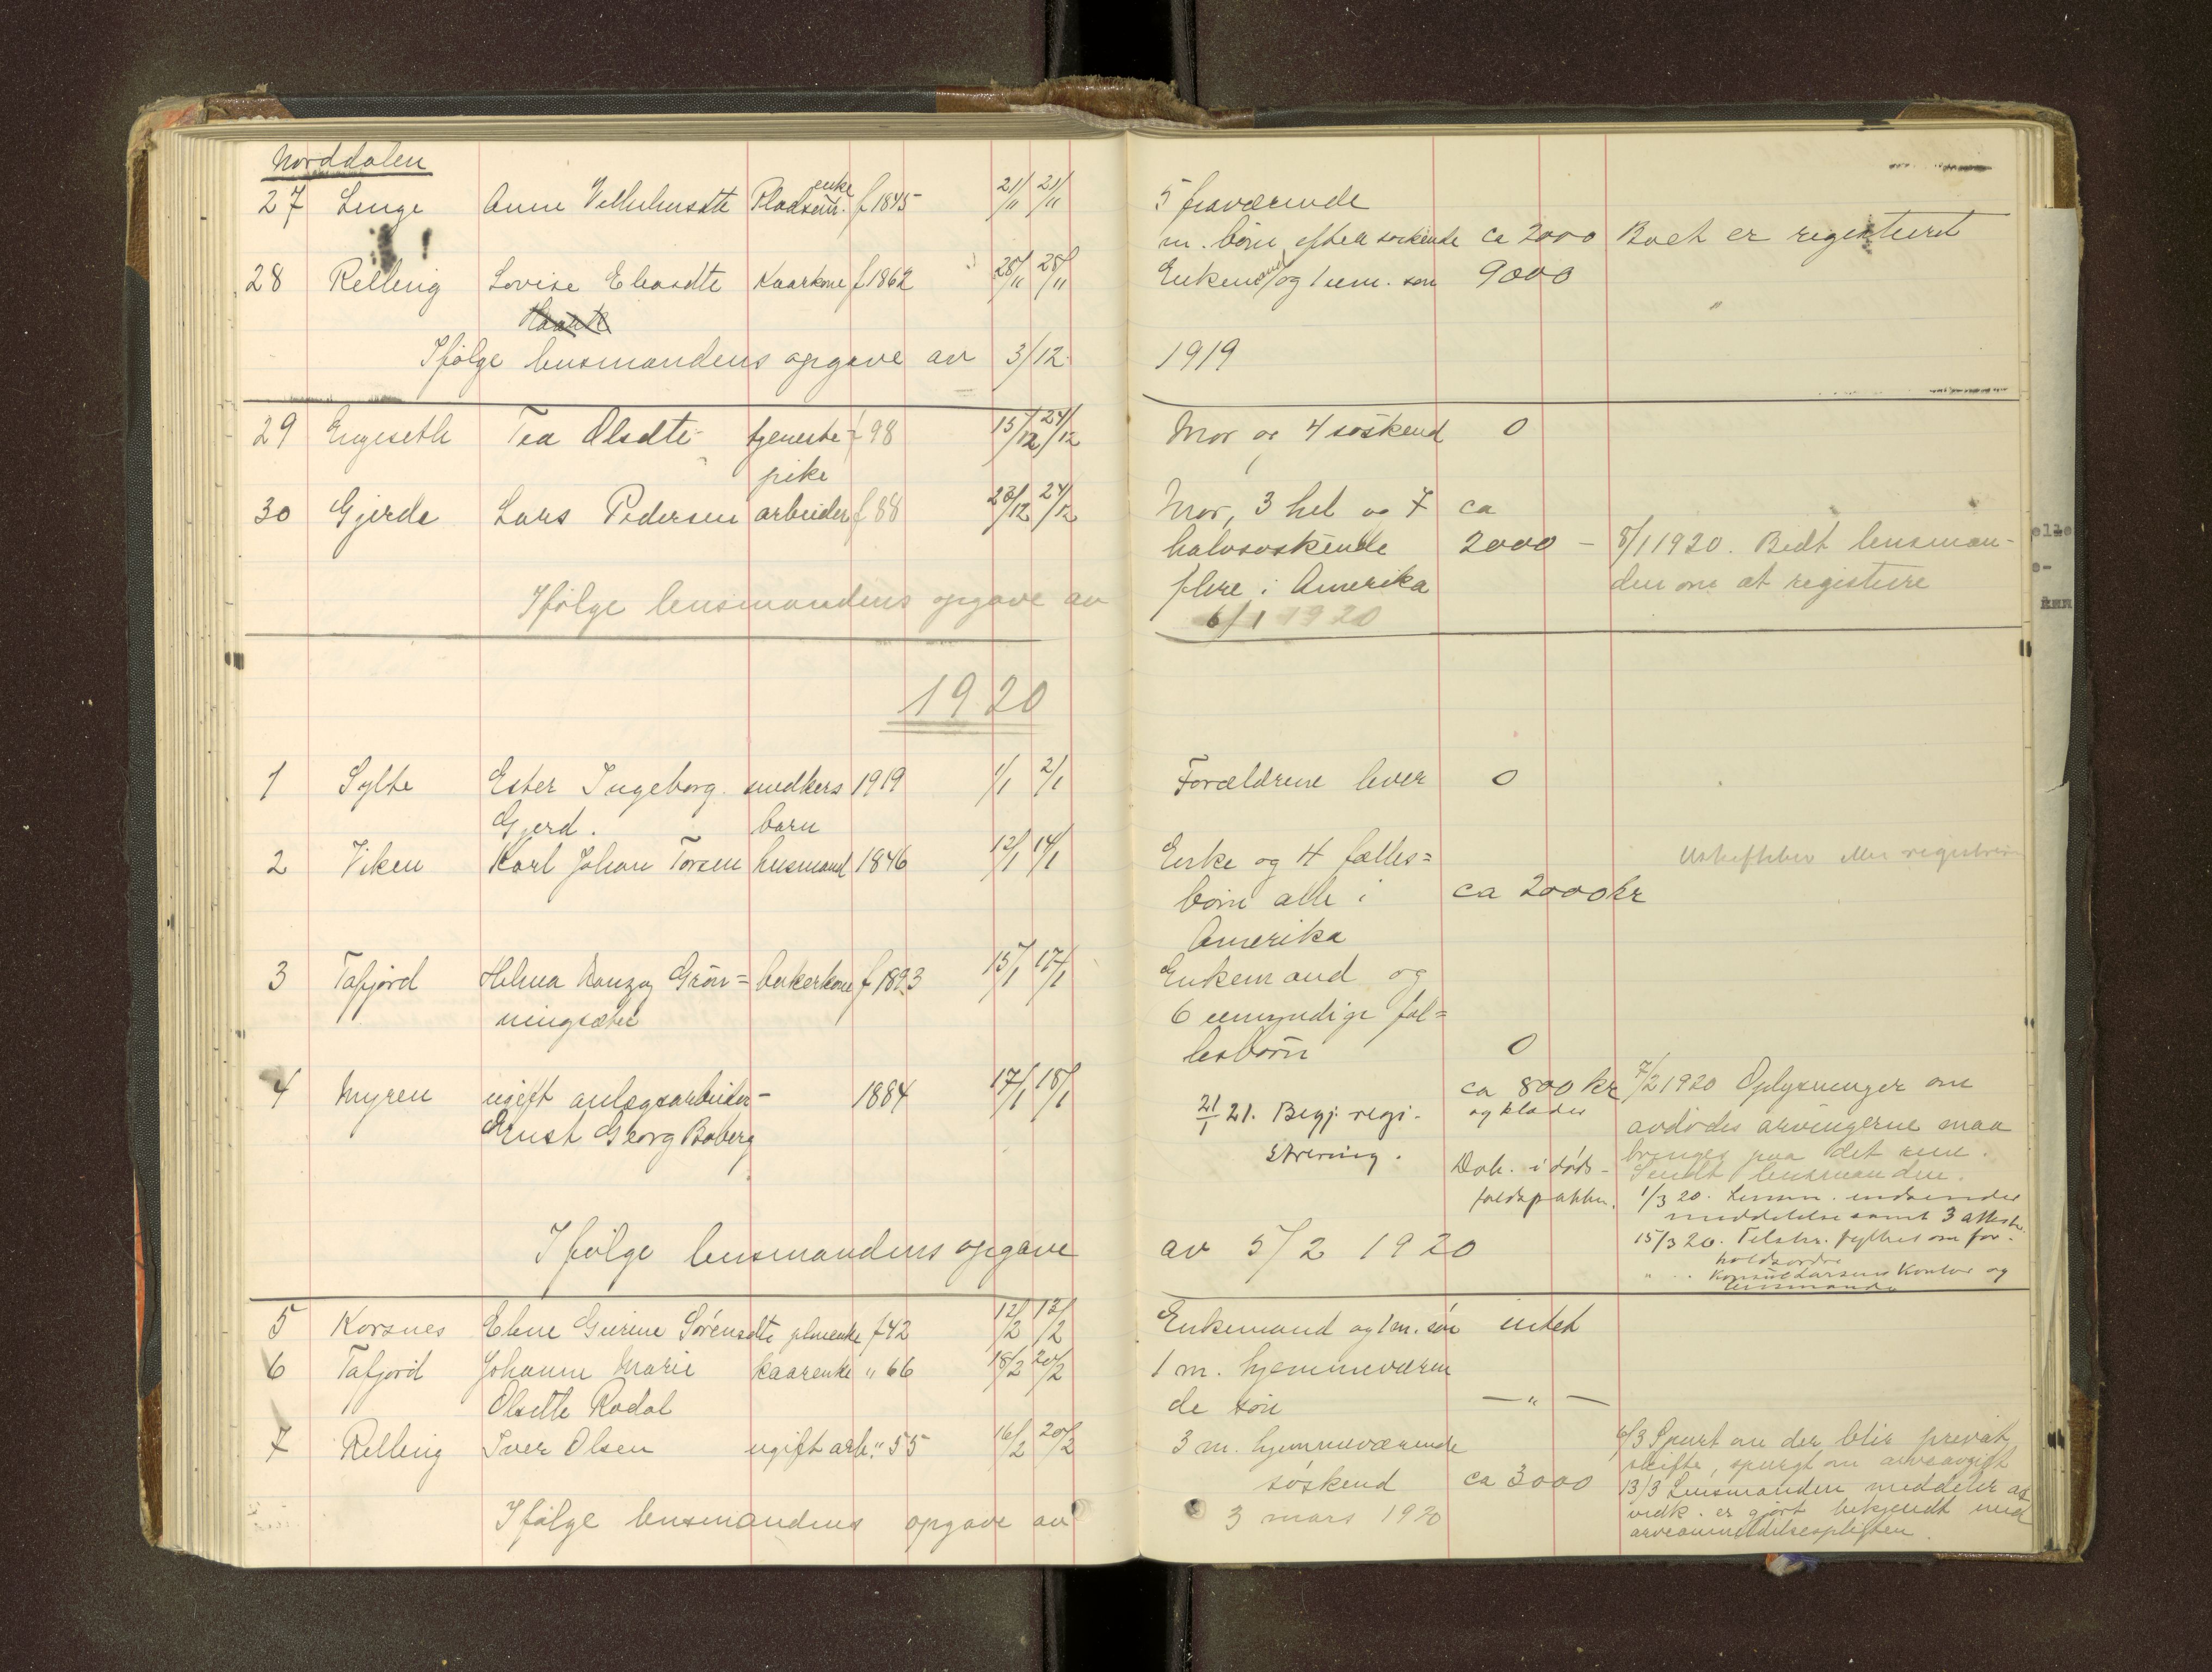 Norddalen
27 Linge Anne Vilhelmsdtr Pladsenke f 1845 21/11 21/11 5 fraværende
m. børn efter søskende ca 2000 Boet er registreret
28 Relling Lovise Eliasdtr Kaarkone f 1862 25/11 28/11 Enkemand og 1 um. søn 9000 "
Ifølge lensmandens opgave av 3/12 1919
29 Engeseth Tea Olsdtr tjeneste- f 98 15/12 24/12 Mor og 4 søskend 0
pike
30 Gjerde Lars Pedersen arbeider f 88 23/12 24/12 Mor, 3 hel og 7 ca
halvsøskende 2000 – 8/1 1920. Bedt lensman-
flere i Amerika den om at registrere
Ifølge lensmandens opgave av 6/1 1920
1920
1 Sylte Ester Ingeborg snedkers 1919 1/1 2/1 Forældrene lever 0
Gjerd. barn
2 Viken Karl Johan Torsen husmand 1846 12/1 14/1 Enke og 4 fælles=
børn alle i ca 2000 kr
Amerika
3 Tafjord Helma Grøn= bakerkone f 1893 15/1 17/1 Enkemand og
ningsæter 6 umyndige fæl=
lesbørn 0
4 Myren ugift anlægsarbeider- 1884 17/1 18/1 ca 800 kr 7/2 1920 Oplysninger om
Ernst Georg Boberg 21/1 21. Begj. regi- og klæder avdødes arvingerne maa
strering. Dok. i døds- bringes paa det rene.
faldspakken. Sendt lensmanden.
1/3 20. Lensm. indsender
meddelelse samt 3 attester
15/3 20. Telefr. fylket om for-
holdsordre
" Konsul Larsens Kontor og
lensmanden
Ifølge lensmandens opgave av 5/2 1920
5 Korsnes Elene Gurine Sørensdtr f 42 12/2 13/2 Enkemand og 1 m. søn intet
6 Tafjord Johanne Marie kaarenke " 66 18/2 20/2 1 m. hjemmeværen
Olsdtr Rødal de søn — " —
7 Relling Iver Olsen ugift arb. " 55 16/2 20/2 3 m. hjemmeværende 6/3 Spurt om der blir privat
søskend ca 3000 skifte, spurgt om arveavgift
13/3 Lensmanden meddeler at
vedk. er gjort bekjendt med
arveanmeldelsesplikten.
Ifølge lensmandens opgave av 3 mars 1920
elle
e-